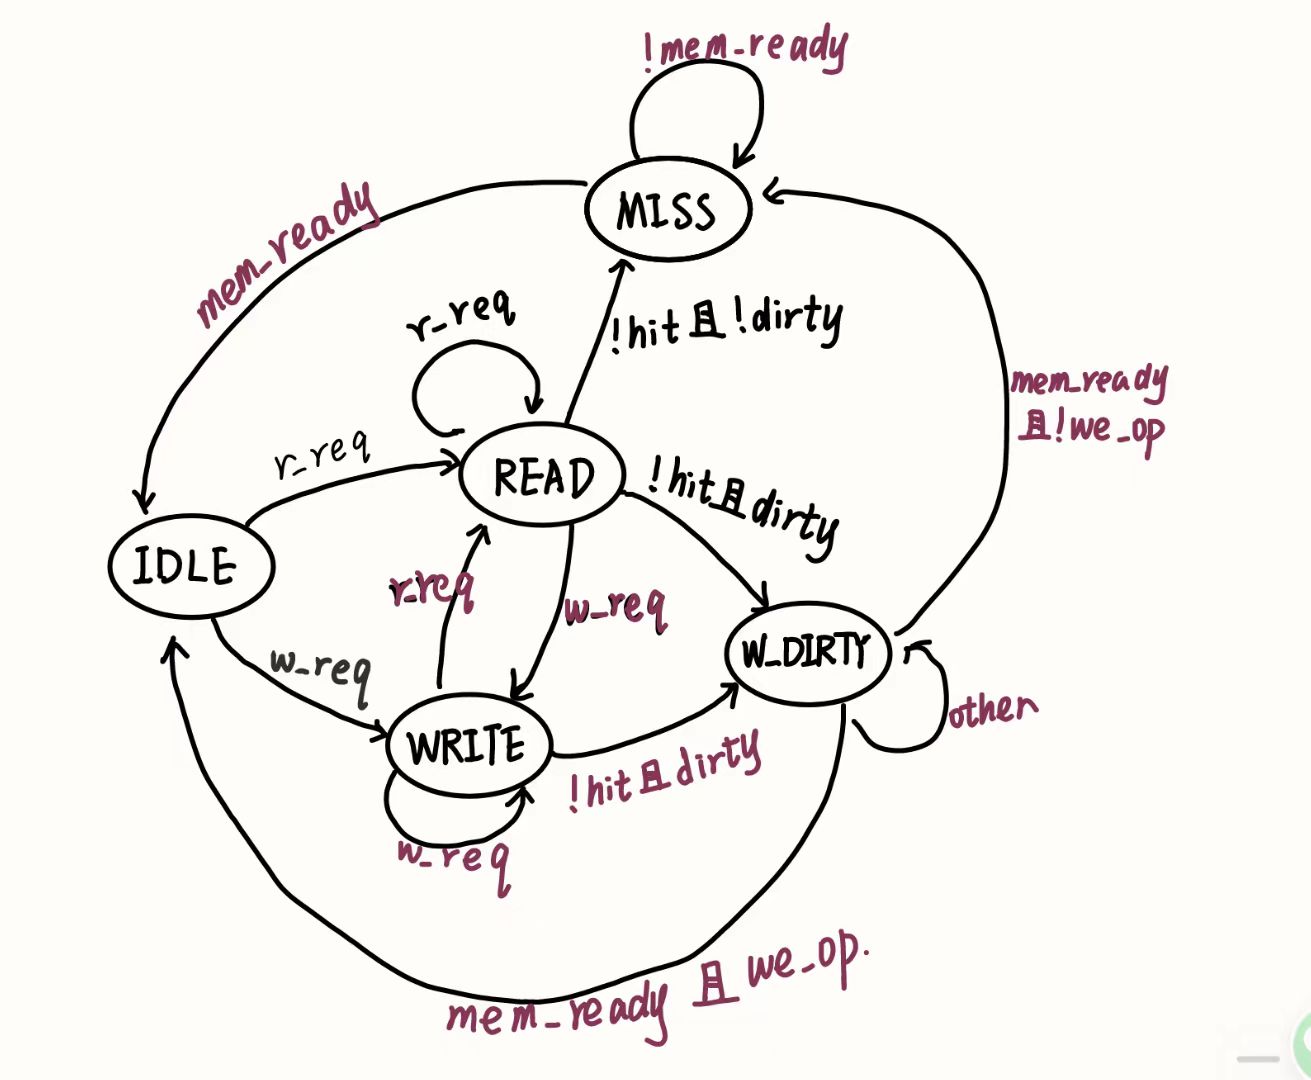 !mem_ready
MISS
mem_ready
r_req
!hit且!dirty
mem_ready
且!we_op
r_req
READ
!hit且dirty
IDLE
r_req
w_req
w_req
W_DIRTY
WRITE
!hit且dirty
other
w_req
mem_ready 且 we_op.